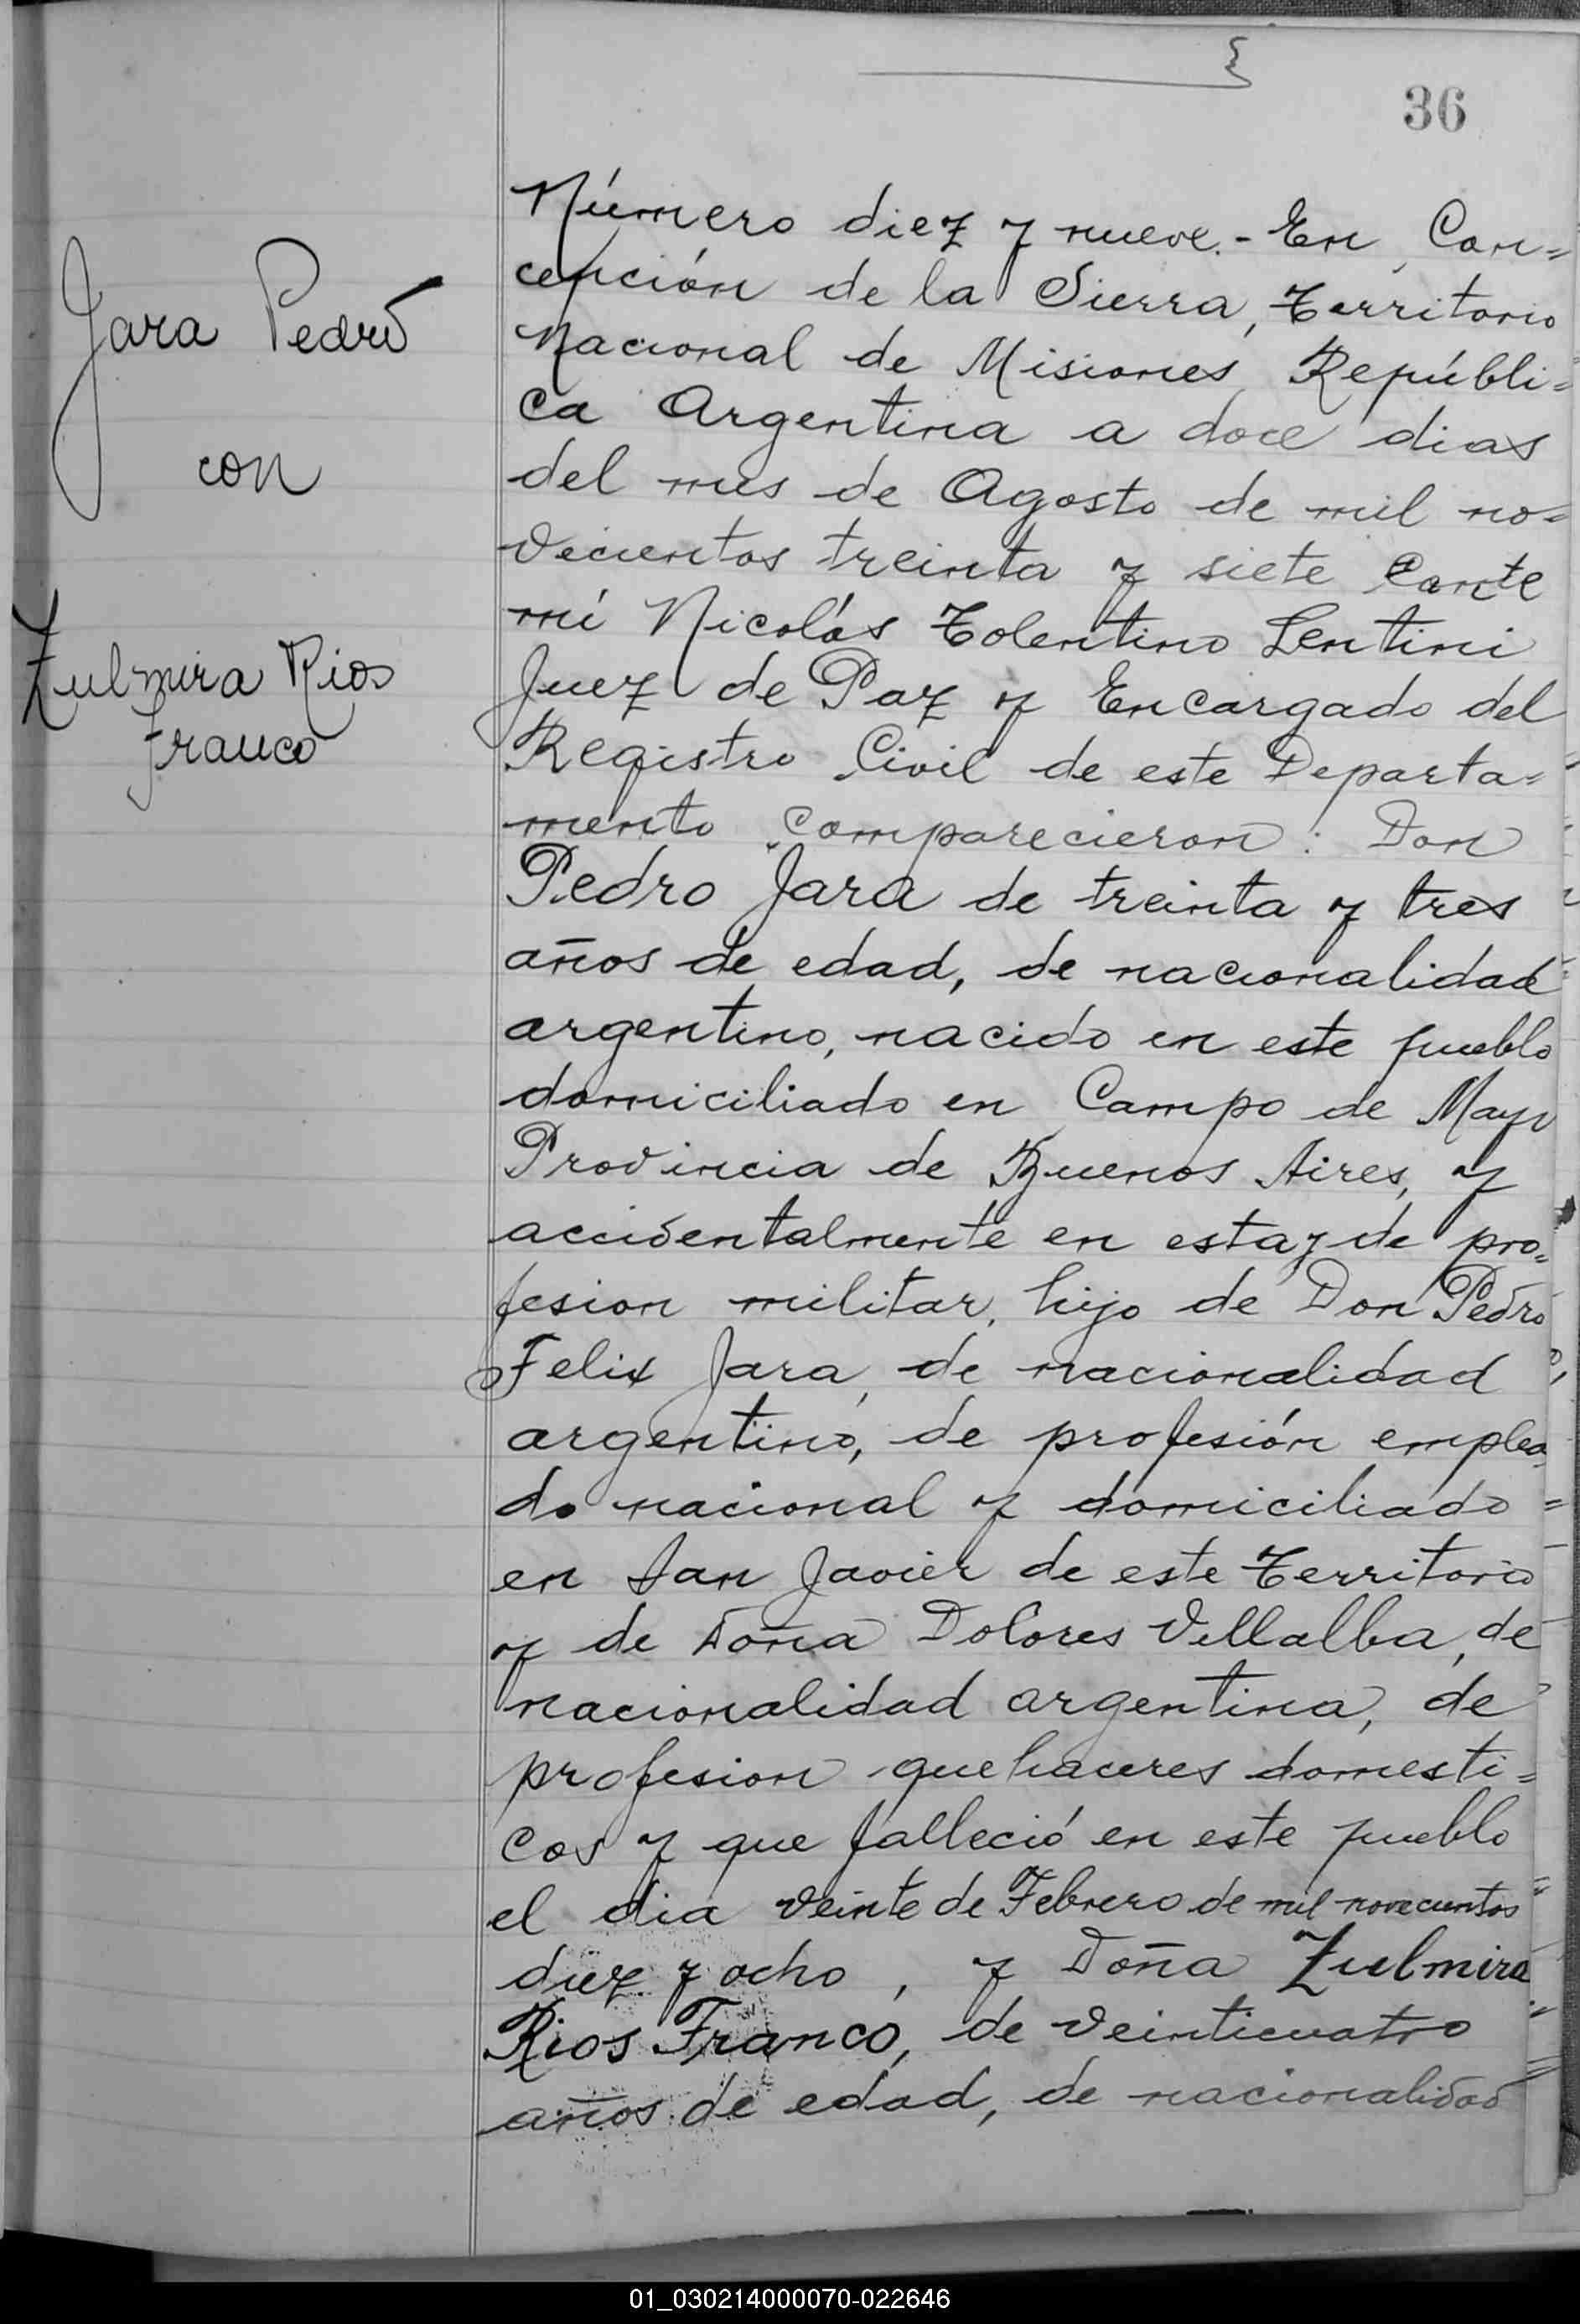 36
Jara Pedro
con
Zulmira Rios
Franco
Número diez y nueve.- En Con=
cepción de la Sierra, Territorio
Nacional de Misiones, Repúbli=
ca Argentina a doce dias
del mes de Agosto de mil no=
vecientos treinta y siete ante
mí Nicolás Tolentino Lentini
Juez de Paz y Encargado del
Registro Civil de este Departa=
mento comparecieron: Don
Pedro Jara de treinta y tres
años de edad, de nacionalidad
argentino, nacido en este pueblo
domiciliado en Campo de Mayo
Provincia de Buenos Aires, y
accidentalmente en esta y de pro=
fesion militar, hijo de Don Pedro
Felix Jara, de nacionalidad
argentino, de profesión emplea
do nacional y domiciliado
en San Javier de este Territorio
y de Doña Dolores Villalba, de
nacionalidad argentina, de
profesion quehaceres domesti=
cos y que falleció en este pueblo
el dia veinte de Febrero de mil novecientos
diez y ocho, y Doña Zulmira
Rios Franco, de veinticuatro
años de edad, de nacionalidad
01_030214000070-022646